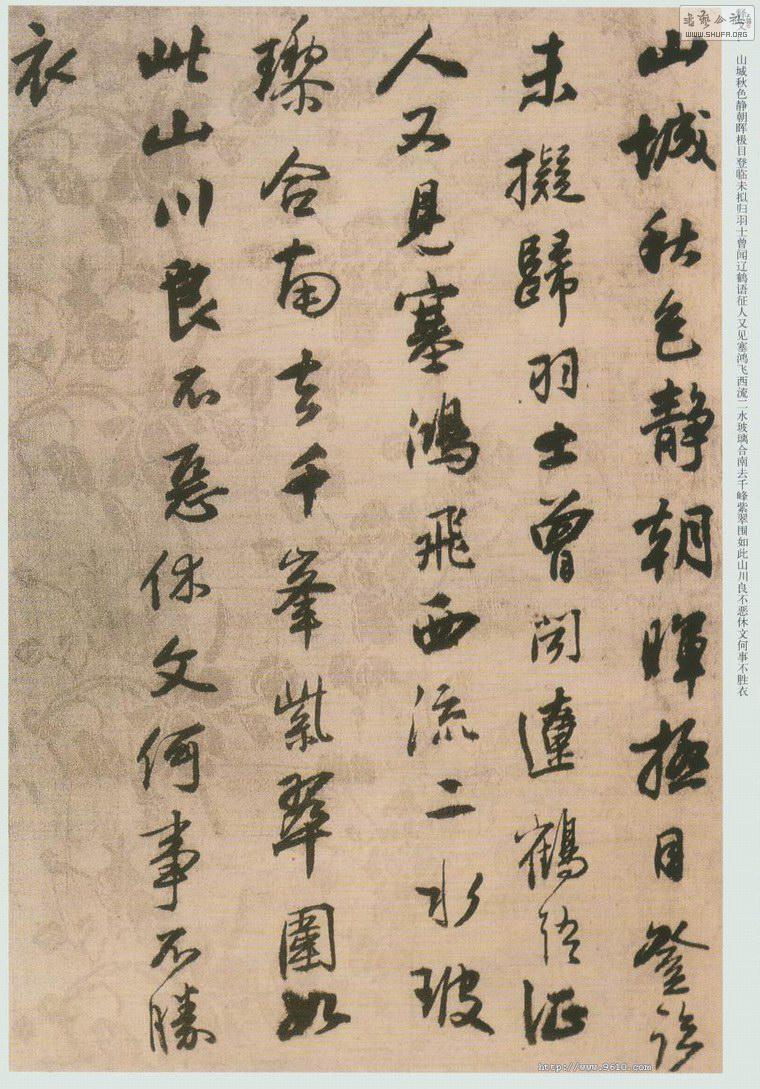 山城秋色靜朝暉極目登臨
未擬歸羽士曾聞遼鶴語征
人又見塞鴻飛西流二水玻
瓈合南去千峯紫翠圍如
此山川良不惡休文何事不勝
衣
释文:
山城秋色静朝晖极目登临未拟归羽士曾闻辽鹤语征人又见塞鸿飞西流二水玻璃合南去千峰紫翠围如此山川良不恶休文何事不胜衣
书艺公社
www.SHUFA.ORG
http://www.9610.com